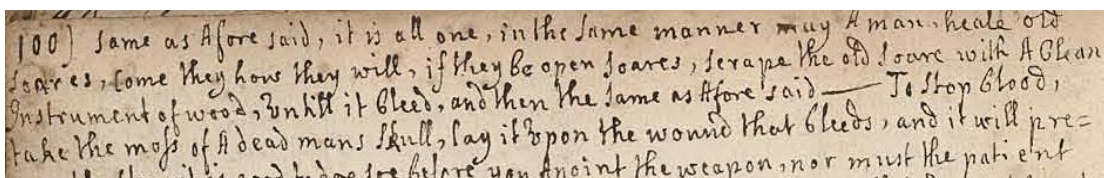 100) same as Afore said, it is all one, in the same manner may A man heale old
soares, come they how they will, if they be open soares, scrape the old soare with A Clean
Instrument of wood, untill it bleed, and then the same as Afore said — To stop blood,
take the moss of A dead mans skull, lay it upon the wound that bleeds, and it will pre=
it is good to doe soe before you Anoint the weapon, nor must the patient